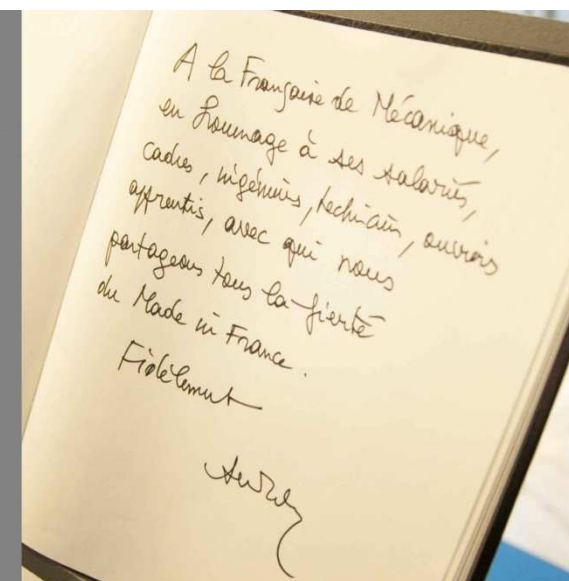 A la Française de Mécanique,
en hommage à ses salariés,
cadres, ingénieurs, techniciens, ouvriers
apprentis, avec qui nous
partageons tous la fierté
du Made in France.
Fidèlement